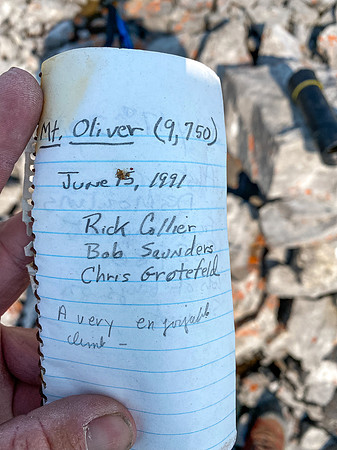 Mt. Oliver (9,750)
June 15, 1991
Rick Collier
Bob Saunders
Chris Grotefeld
A very enjoyable
climb -